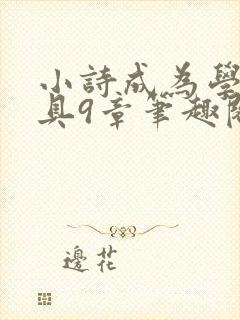 小詩成為學
具9章筆趣閣
邊花